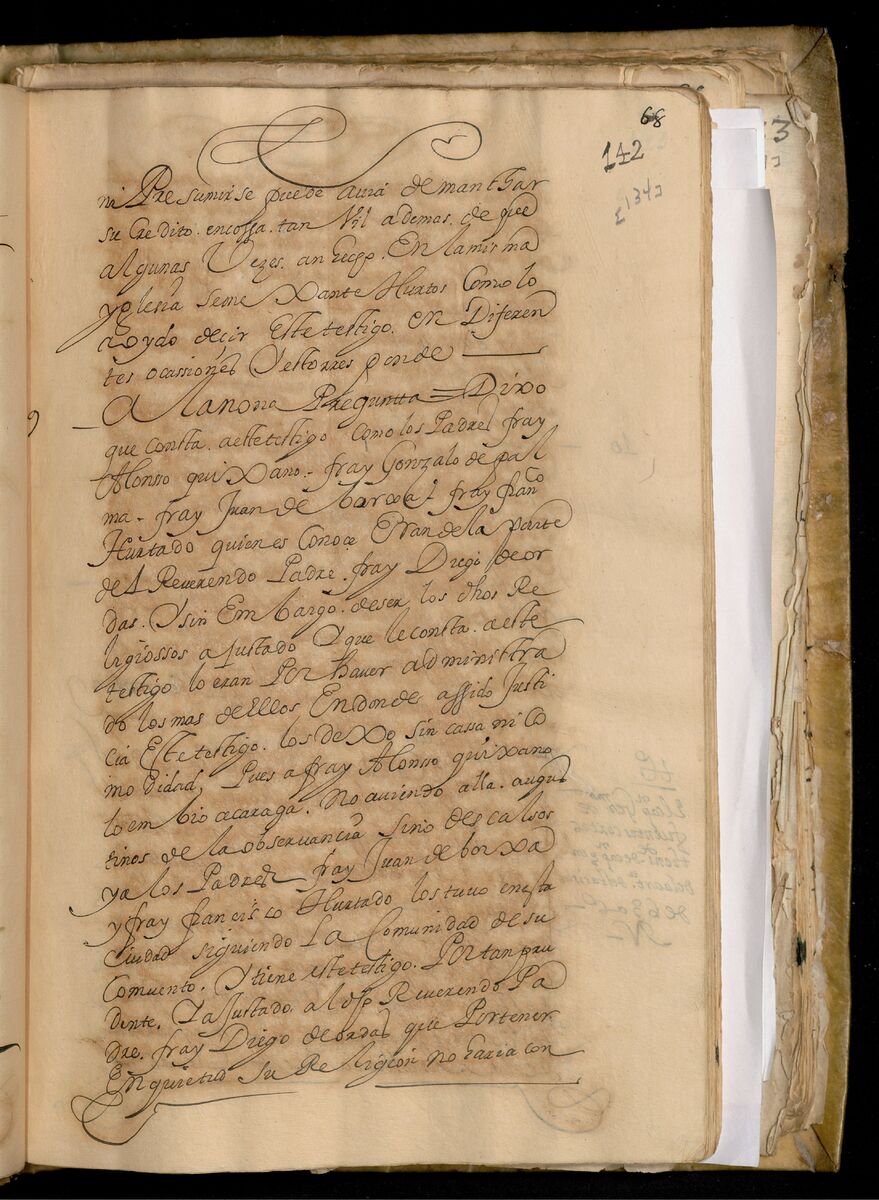 68
142
[134]
ni Presumirse puede avia de manchar
su Credito. en cossa. tan Vil ademas. de que
algunas Vezes. an hecho. En la misma
yglesia semexante Hurtos Como lo
a oydo decir Este testigo. en Diferen
tes ocassiones Y esto rresponde
A la nona Pregunta = Dixo
que consta. a este testigo como los Padres fray
Alonso quixano. fray Gonzalo de pal
ma. fray Juan de borxa i fray fran.co
Hurtado quienes Conoce Eran de la parte
del Reverendo Padre. fray Diego de or
das. Y sin Embargo. de ser los dhos Re
ligiossos ajustado Y que le consta. a este
testigo lo eran Por haver administra
do los mas de Ellos En donde a ssido Justi
cia Este testigo. los dexo sin cassa ni Co
modidad, Pues a fray Alonso quixano
lo embio a caraga. No aviendo alla. augus
tinos de la observancia sino descalsos
y a los Padres fray Juan de borxa
y fray francisco Hurtado los tuvo en esta
Ciudad siguiendo La Comunidad de su
Comvento. Y tiene este testigo. Por tan pru
dente. Y ajustado. al dho Reverendo Pa
dre. fray Diego de ordas que Por tener
En quietud su Religion no haria con